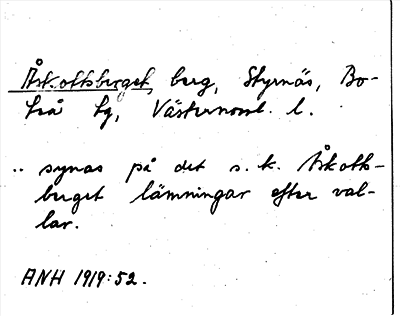 Åskottsberget, berg, Styrnäs, Bo-
teå tg, Västernorrl. l.
.. synas på det s. k. Åskotts-
berget lämningar efter val-
lar.
ANH 1919:52.